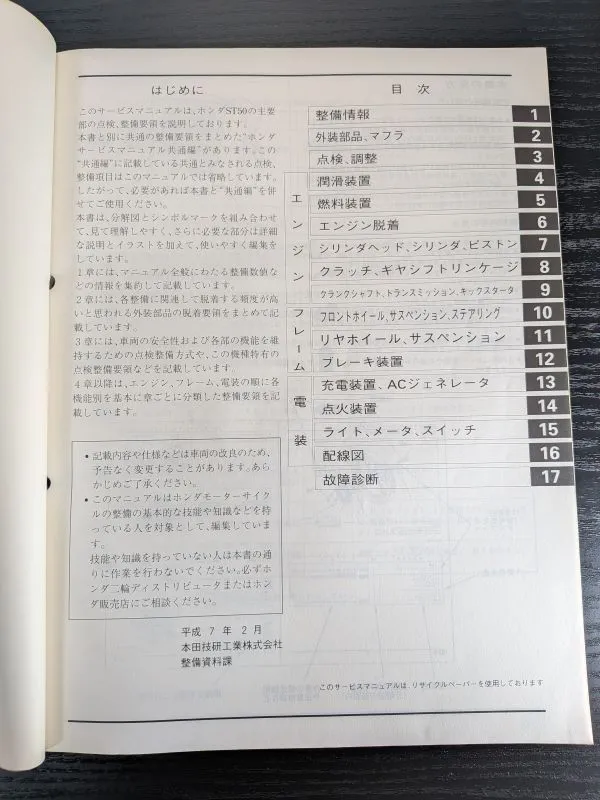 はじめに
このサービスマニュアルは、ホンダST50の主要
部の点検、整備要領を説明しております。
本書と別に共通の整備要領をまとめた“ホンダ
サービスマニュアル共通編”があります。この
“共通編”に記載している共通とみなされる点検、
整備項目はこのマニュアルでは省略しています。
したがって、必要があれば本書と“共通編”を併
せてご使用ください。
本書は、分解図とシンボルマークを組み合わせ
て、見て理解しやすく、さらに必要な部分は詳細
な説明とイラストを加えて、使いやすく編集を
しています。
1章には、マニュアル全般にわたる整備数値な
どの情報を集約して記載しています。
2章には、各整備に関連して脱着する頻度が高
いと思われる外装部品の脱着要領をまとめて記
載しています。
3章には、車両の安全性および各部の機能を維
持するための点検整備方式や、この機種特有の
点検整備要領などを記載しています。
4章以降は、エンジン、フレーム、電装の順に各
機能別を基本に章ごとに分類した整備要領を記
載しています。
• 記載内容や仕様などは車両の改良のため、
予告なく変更することがあります。あら
かじめご了承ください。
• このマニュアルはホンダモーターサイク
ルの整備の基本的な技能や知識などを持
っている人を対象として、編集していま
す。
技能や知識を持っていない人は本書の通
りに作業を行わないでください。必ずホ
ンダ二輪ディストリビュータまたはホン
ダ販売店にご相談ください。
平成 7 年 2 月
本田技研工業株式会社
整備資料課
目 次
整備情報 1
外装部品、マフラ 2
点検、調整 3
エンジン
潤滑装置 4
燃料装置 5
エンジン脱着 6
シリンダヘッド、シリンダ、ピストン 7
クラッチ、ギヤシフトリンケージ 8
クランクシャフト、トランスミッション、キックスタータ 9
フレーム
フロントホイール、サスペンション、ステアリング 10
リヤホイール、サスペンション 11
ブレーキ装置 12
電装
充電装置、ACジェネレータ 13
点火装置 14
ライト、メータ、スイッチ 15
配線図 16
故障診断 17
このサービスマニュアルは、リサイクルペーパーを使用しております